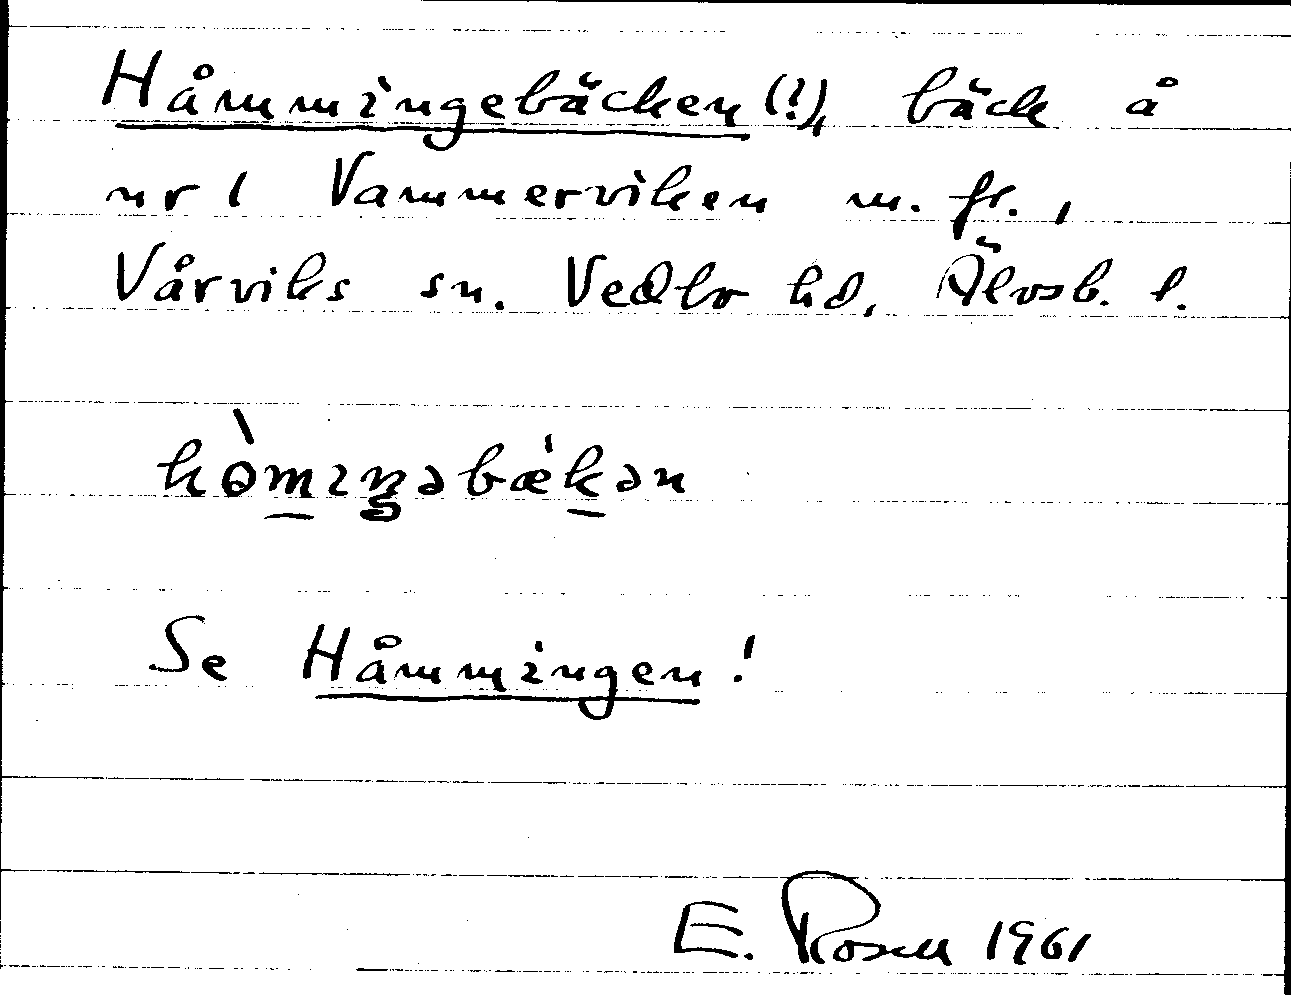 Håmmingebäcken (?), bäck å
nr 1 Vammerviken m. fl.,
Vårviks sn. Vedbo hd, Älvsb. l.
hòmıŋəbæ̀kən
Se Håmmingen!
E. Rosell 1961